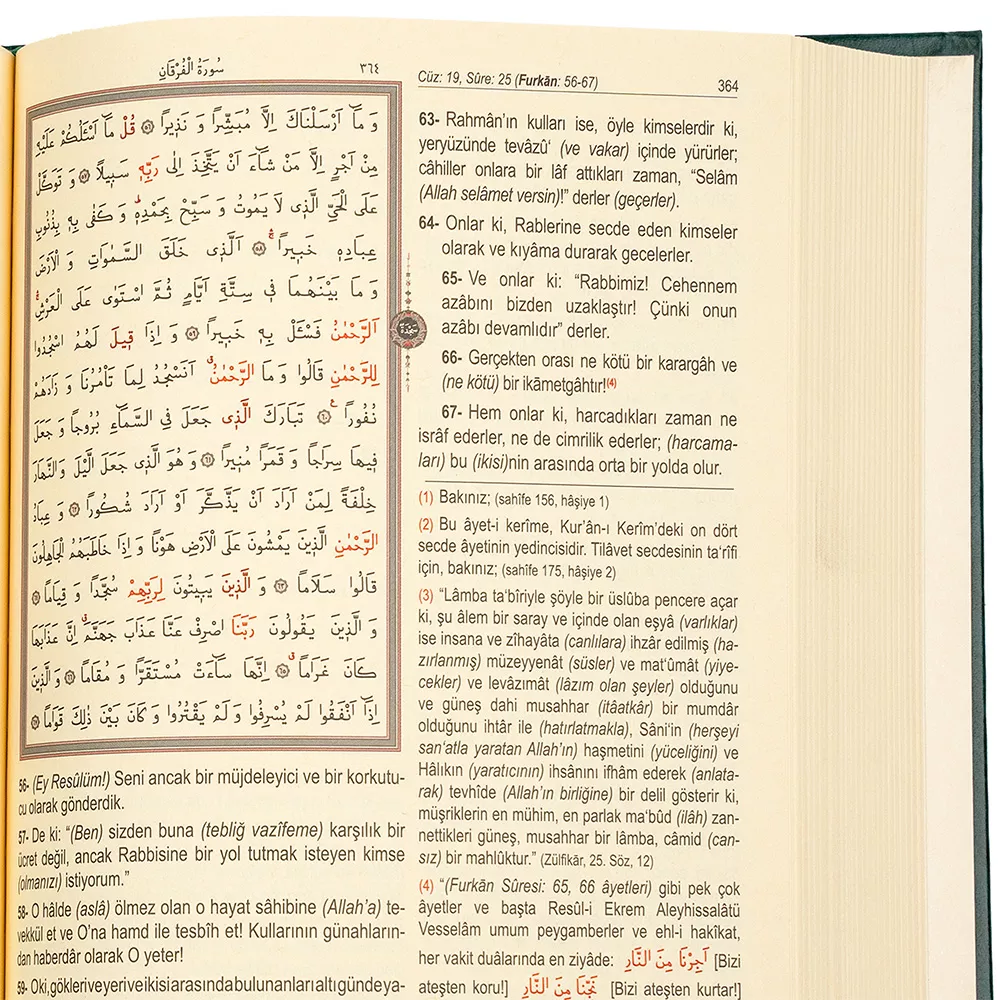 سُورَةُ الْفُرْقَانِ
٣٦٤
وَ مَٓا اَرْسَلْنَاكَ اِلَّا مُبَشِّرًا وَ نَذ۪يرًا ﴿٥٦﴾ قُلْ مَٓا اَسْـَٔلُكُمْ عَلَيْهِ
مِنْ اَجْرٍ اِلَّا مَنْ شَٓاءَ اَنْ يَتَّخِذَ اِلٰى رَبِّه۪ سَب۪يلًا ﴿٥٧﴾ وَ تَوَكَّلْ
عَلَى الْحَيِّ الَّذ۪ي لَا يَمُوتُ وَ سَبِّحْ بِحَمْدِه۪ۜ وَ كَفٰى بِه۪ بِذُنُوبِ
عِبَادِه۪ خَب۪يرًا ﴿٥٨﴾ اَلَّذ۪ي خَلَقَ السَّمٰوَاتِ وَ الْاَرْضَ
وَ مَا بَيْنَهُمَا ف۪ي سِتَّةِ اَيَّامٍ ثُمَّ اسْتَوٰى عَلَى الْعَرْشِ
اَلرَّحْمٰنُ فَسْـَٔلْ بِه۪ خَب۪يرًا ﴿٥٩﴾ وَ اِذَا ق۪يلَ لَهُمُ اسْجُدُوا
لِلرَّحْمٰنِ قَالُوا وَ مَا الرَّحْمٰنُ اَنَسْجُدُ لِمَا تَأْمُرُنَا وَ زَادَهُمْ
نُفُورًا ﴿٦٠﴾ تَبَارَكَ الَّذ۪ي جَعَلَ فِي السَّمَٓاءِ بُرُوجًا وَ جَعَلَ
ف۪يهَا سِرَاجًا وَ قَمَرًا مُن۪يرًا ﴿٦١﴾ وَ هُوَ الَّذ۪ي جَعَلَ الَّيْلَ وَ النَّهَارَ
خِلْفَةً لِمَنْ اَرَادَ اَنْ يَذَّكَّرَ اَوْ اَرَادَ شُكُورًا ﴿٦٢﴾ وَ عِبَادُ
الرَّحْمٰنِ الَّذ۪ينَ يَمْشُونَ عَلَى الْاَرْضِ هَوْنًا وَ اِذَا خَاطَبَهُمُ الْجَاهِلُونَ
قَالُوا سَلَامًا ﴿٦٣﴾ وَ الَّذ۪ينَ يَب۪يتُونَ لِرَبِّهِمْ سُجَّدًا وَ قِيَامًا ﴿٦٤﴾
وَ الَّذ۪ينَ يَقُولُونَ رَبَّنَا اصْرِفْ عَنَّا عَذَابَ جَهَنَّمَ اِنَّ عَذَابَهَا
كَانَ غَرَامًا ﴿٦٥﴾ اِنَّهَا سَٓاءَتْ مُسْتَقَرًّا وَ مُقَامًا ﴿٦٦﴾ وَ الَّذ۪ينَ
اِذَٓا اَنْفَقُوا لَمْ يُسْرِفُوا وَ لَمْ يَقْتُرُوا وَ كَانَ بَيْنَ ذٰلِكَ قَوَامًا ﴿٦٧﴾
سَجْدَة
56- (Ey Resûlüm!) Seni ancak bir müjdeleyici ve bir korkutu-
cu olarak gönderdik.
57- De ki: “(Ben) sizden buna (tebliğ vazîfeme) karşılık bir
ücret değil, ancak Rabbisine bir yol tutmak isteyen kimse
(olmanızı) istiyorum.”
58- O hâlde (aslâ) ölmez olan o hayat sâhibine (Allah’a) te-
vekkül et ve O’na hamd ile tesbîh et! Kullarının günahların-
dan haberdâr olarak O yeter!
59- O ki, gökleri ve yeri ve ikisi arasında bulunanları altı günde ya-
Cüz: 19, Sûre: 25 (Furkān: 56-67)
364
63- Rahmân’ın kulları ise, öyle kimselerdir ki,
yeryüzünde tevâzu‘ (ve vakar) içinde yürürler;
câhiller onlara bir lâf attıkları zaman, “Selâm
(Allah selâmet versin)!” derler (geçerler).
64- Onlar ki, Rablerine secde eden kimseler
olarak ve kıyâma durarak gecelerler.
65- Ve onlar ki: “Rabbimiz! Cehennem
azâbını bizden uzaklaştır! Çünki onun
azâbı devamlıdır” derler.
66- Gerçekten orası ne kötü bir karargâh ve
(ne kötü) bir ikāmetgâhtır!(4)
67- Hem onlar ki, harcadıkları zaman ne
isrâf ederler, ne de cimrilik ederler; (harcama-
ları) bu (ikisi)nin arasında orta bir yolda olur.
(1) Bakınız; (sahîfe 156, hâşiye 1)
(2) Bu âyet-i kerîme, Kur’ân-ı Kerîm’deki on dört
secde âyetinin yedincisidir. Tilâvet secdesinin ta‘rîfi
için, bakınız; (sahîfe 175, hâşiye 2)
(3) “Lâmba ta‘bîriyle şöyle bir üslûba pencere açar
ki, şu âlem bir saray ve içinde olan eşyâ (varlıklar)
ise insana ve zîhayâta (canlılara) ihzâr edilmiş (ha-
zırlanmış) müzeyyenât (süsler) ve mat‘ûmât (yiye-
cekler) ve levâzımât (lâzım olan şeyler) olduğunu
ve güneş dahi musahhar (itâatkâr) bir mumdâr
olduğunu ihtâr ile (hatırlatmakla), Sâni‘in (herşeyi
san‘atla yaratan Allah’ın) haşmetini (yüceliğini) ve
Hâlıkın (yaratıcının) ihsânını ifhâm ederek (anlata-
rak) tevhîde (Allah’ın birliğine) bir delil gösterir ki,
müşriklerin en mühim, en parlak ma‘bûd (ilâh) zan-
nettikleri güneş, musahhar bir lâmba, câmid (can-
sız) bir mahlûktur.” (Zülfikār, 25. Söz, 12)
(4) “(Furkān Sûresi: 65, 66 âyetleri) gibi pek çok
âyetler ve başta Resûl-i Ekrem Aleyhissalâtü
Vesselâm umum peygamberler ve ehl-i hakîkat,
her vakit duâlarında en ziyâde: اَجِرْنَا مِنَ النَّارِ [Bizi
ateşten koru!] نَجِّنَا مِنَ النَّارِ [Bizi ateşten kurtar!]